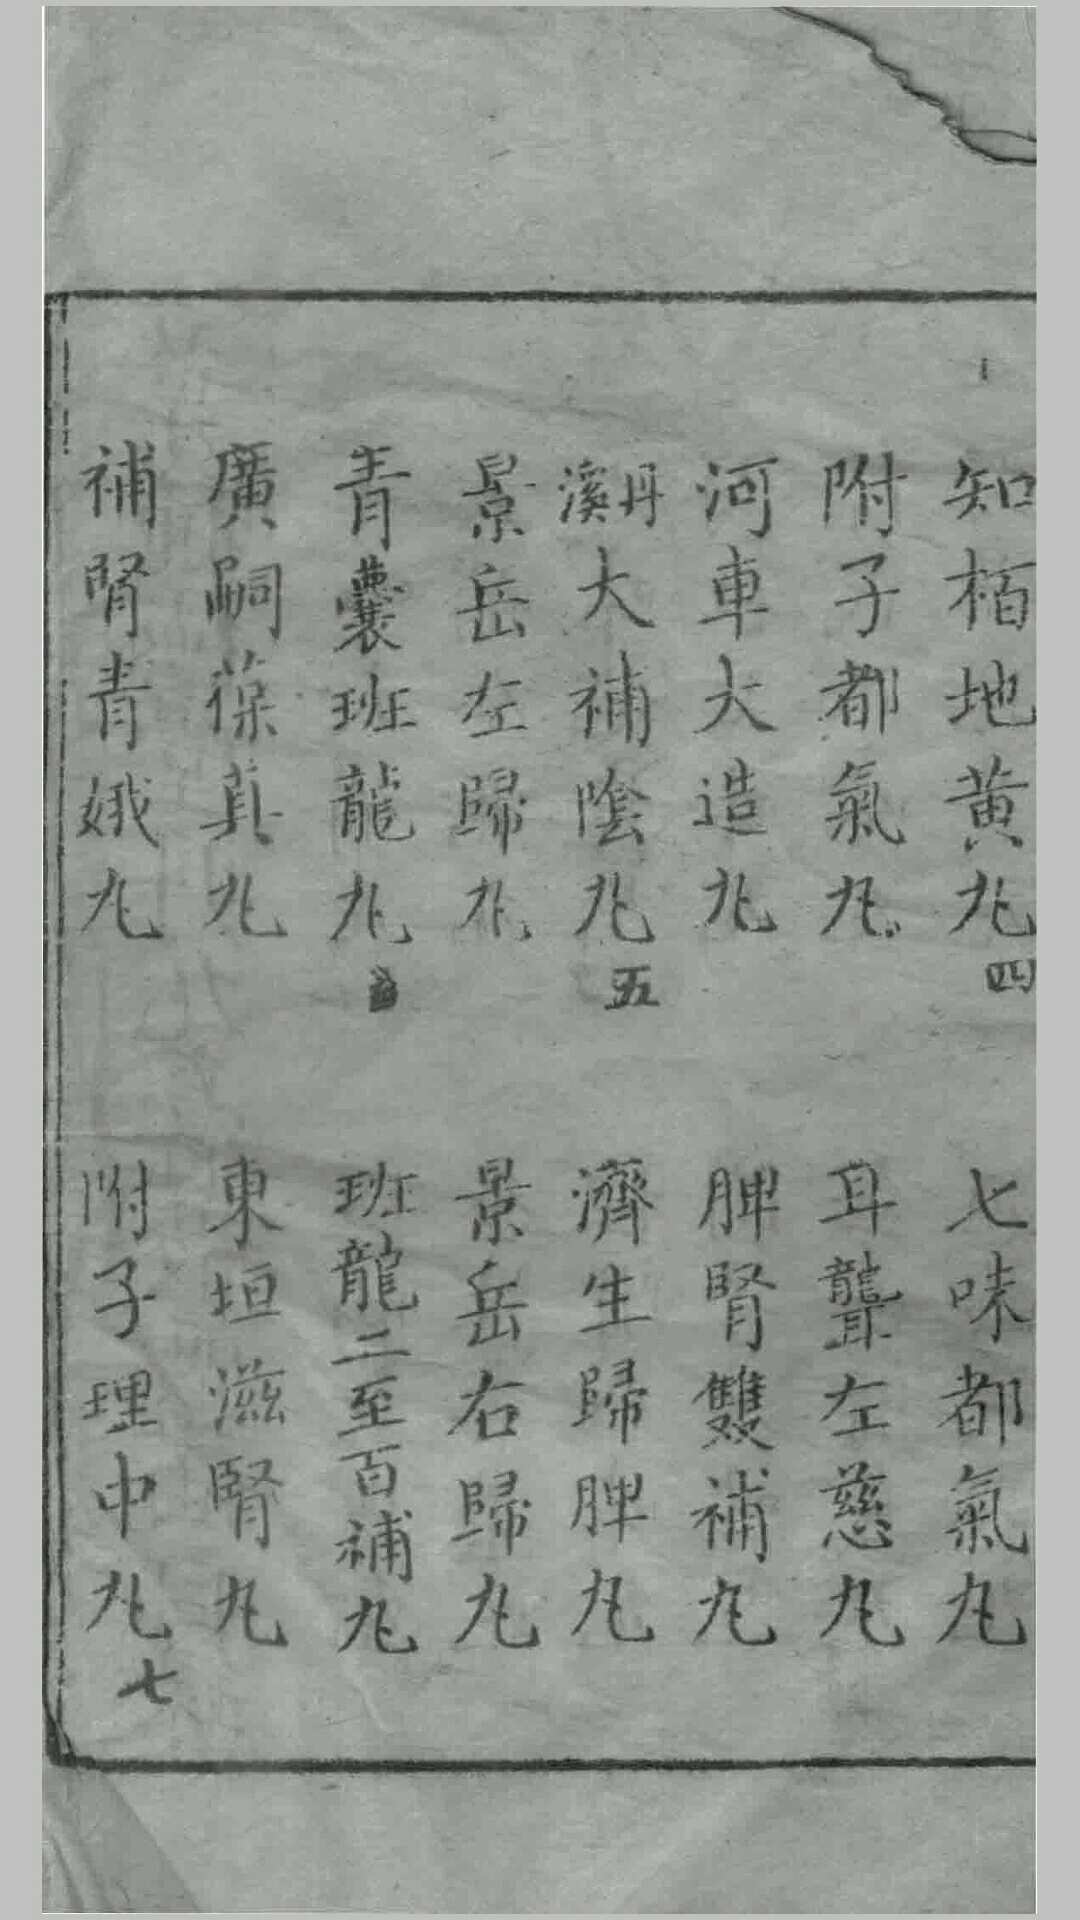 知栢地黄丸四
七味都氣丸
附子都氣丸
耳聾左慈丸
河車大造丸
脾腎雙補丸
丹溪大補陰丸五
濟生歸脾丸
景岳左歸丸
景岳右歸丸
青囊班龍丸
班龍二至百補丸
廣嗣葆真丸
東垣滋腎丸
補腎青娥丸
附子理中丸七